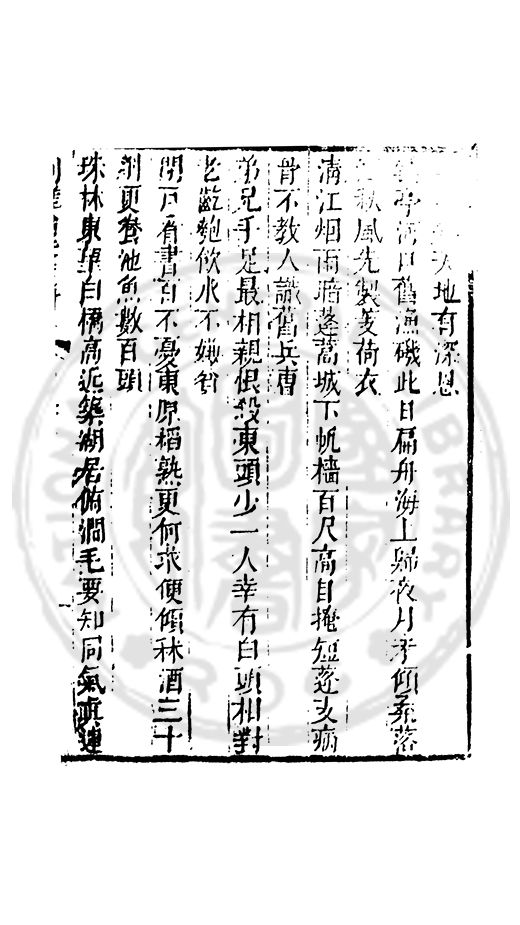 天地有深恩
亭河口舊漁磯此日扁舟海上歸夜月
秋風先製芰荷衣
清江烟雨暗蓬蒿城下帆檣百尺高自掩短蓬支病
骨不教人識舊兵曹
弟兄手足最相親恨殺東頭少一人幸有白頭相對
老齕匏飲水不嫌貧
閉戶看書百不憂東原稻熟更何求便傾秫酒三十
斛更養池魚數百頭
珠林東望白橋高近築湖居俯澗毛要知同氣真連